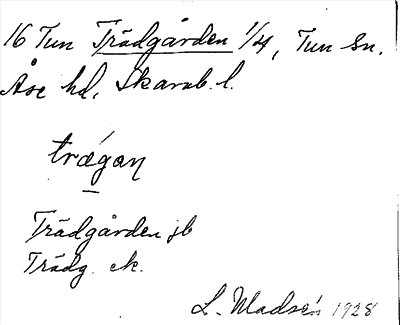 16 Tun Trädgården 1/4, Tun sn.
Åse hd, Skarab. l.
trǽgan
Trädgården jb
Trädg. ek.
L. Madsén 1928